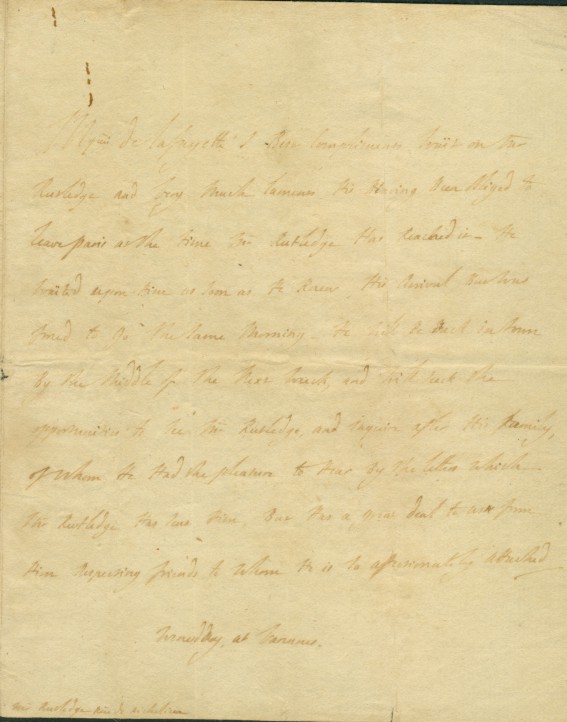 Mquis de Lafayette's Best Compliments wait on Mr
Rutledge and very Much laments His Having Been obliged to
leave paris at the time Mr Rutledge Has Reached it— He
waited upon Him as soon as He Knew His Arrival But was
forced to Go the Same Morning— He will be Back in town
By the Middle of the Next week, and will seek the
opportunities to see Mr Rutledge, and inquire after His family,
of whom He Had the pleasure to Hear By the letters which
Mr Rutledge Has sent Him, But Has a great deal to ask from
Him Respecting friends to whom He is so affectionately attached
at
Mr Rutledge Rue de Richelieu